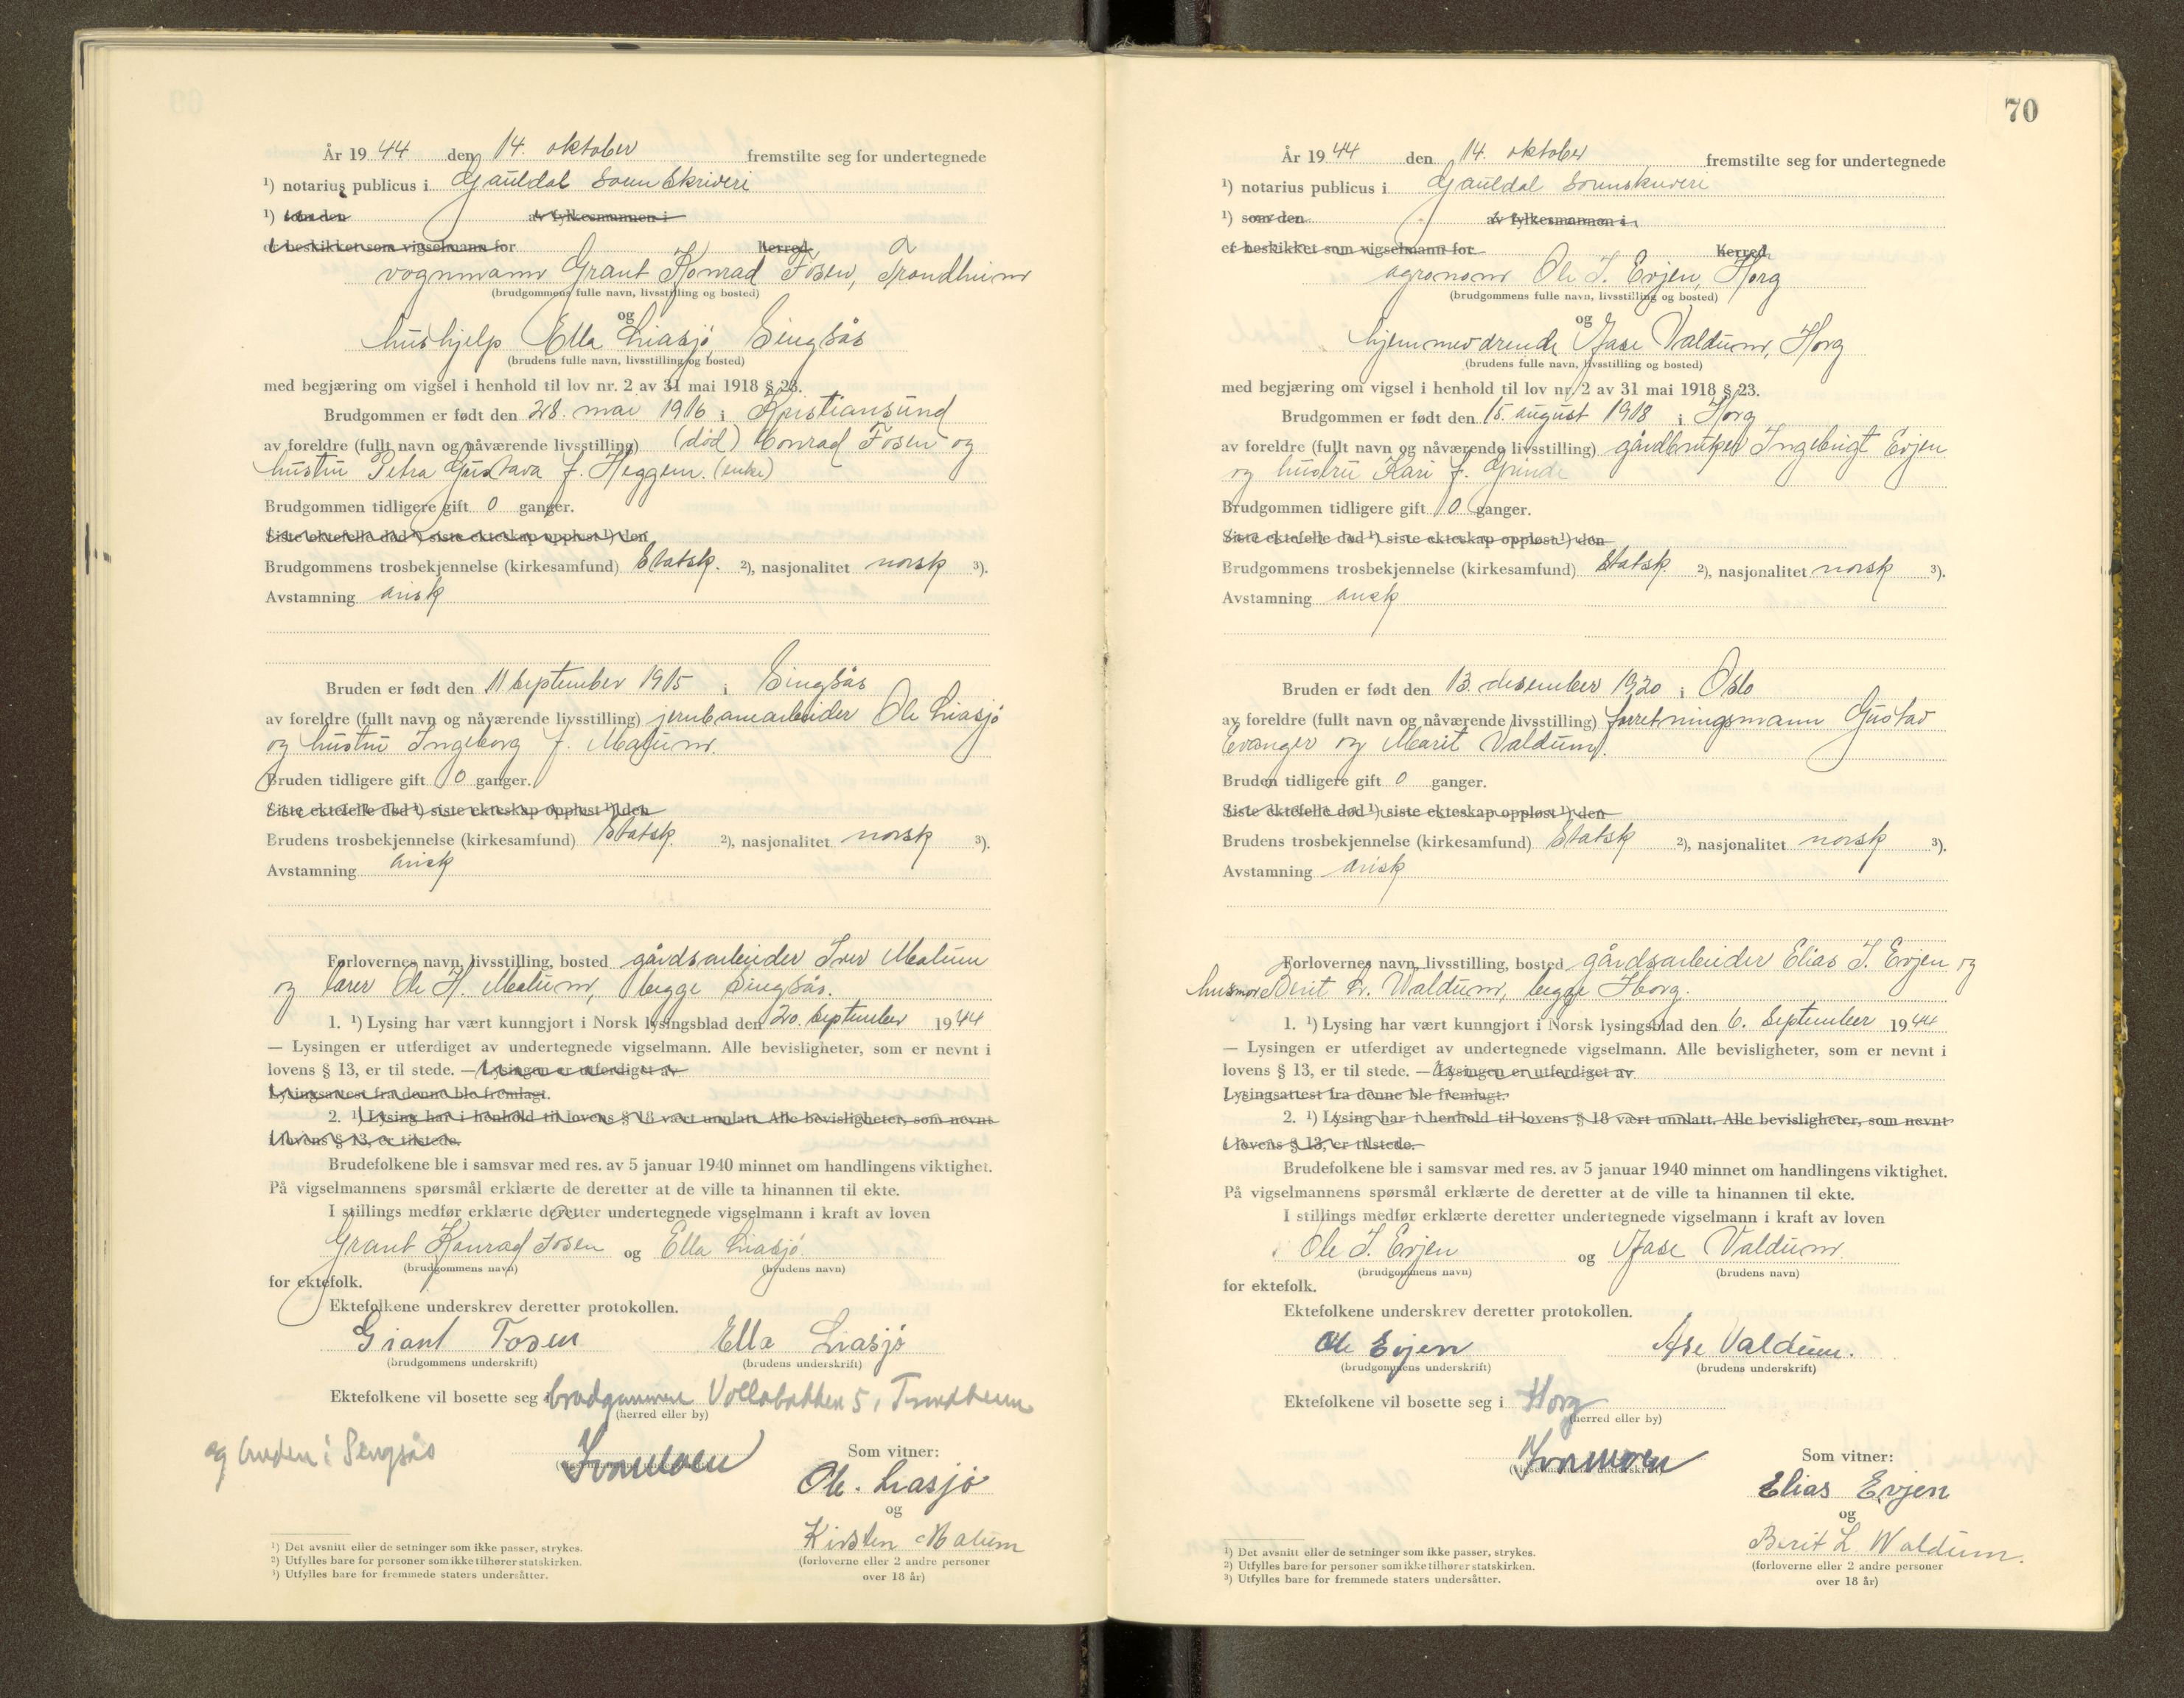 År 19 44 den 14. oktober fremstilte seg for undertegnede
¹) notarius publicus i Gauldal sorenskriveri
¹) som den av fylkesmannen i
er beskikket som vigselmann for herred.
vognmann Grant Konrad Fosen, Trondheim
(brudgommens fulle navn, livsstilling og bosted)
og
hushjelp Ella Liasjø, Singsås
(brudens fulle navn, livsstilling og bosted)
med begjæring om vigsel i henhold til lov nr. 2 av 31 mai 1918 § 23.
Brudgommen er født den 28. mai 1916 i Kristiansund
av foreldre (fullt navn og nåværende livsstilling) (død) Konrad Fosen og
hustru Petra Gustava f. Heggem. (enke)
Brudgommen tidligere gift 0 ganger.
Siste ektefelle død ¹) siste ekteskap oppløst ¹) den
Brudgommens trosbekjennelse (kirkesamfund) Statsk. ²), nasjonalitet norsk ³).
Avstamning arisk
Bruden er født den 11 september 1915 i Singsås
av foreldre (fullt navn og nåværende livsstilling) jernbanearbeider Ole Liasjø
og hustru Ingeborg f. Malum.
Bruden tidligere gift 0 ganger.
Siste ektefelle død ¹) siste ekteskap oppløst ¹) den
Brudens trosbekjennelse (kirkesamfund) Statsk. ²), nasjonalitet norsk ³).
Avstamning arisk
Forlovernes navn, livsstilling, bosted gårdsarbeider Iver Malum
og lærer Ole H. Malum, begge Singsås.
1. ¹) Lysing har vært kunngjort i Norsk lysingsblad den 20. september 1944
— Lysingen er utferdiget av undertegnede vigselmann. Alle bevisligheter, som er nevnt i
lovens § 13, er til stede. — Lysingen er utferdiget av
Lysingsattest fra denne ble fremlagt.
2. ¹) Lysing har i henhold til lovens § 18 vært unnlatt. Alle bevisligheter, som nevnt
i lovens § 13, er tilstede.
Brudefolkene ble i samsvar med res. av 5 januar 1940 minnet om handlingens viktighet.
På vigselmannens spørsmål erklærte de deretter at de ville ta hinannen til ekte.
I stillings medfør erklærte deretter undertegnede vigselmann i kraft av loven
Grant Konrad Fosen og Ella Liasjø
(brudgommens navn) (brudens navn)
for ektefolk.
Ektefolkene underskrev deretter protokollen.
Grant Fosen Ella Liasjø
(brudgommens underskrift) (brudens underskrift)
Ektefolkene vil bosette seg i brudgommen Vollabakken 5, Trondheim
(herred eller by)
og bruden i Singsås
Som vitner:
Ole Liasjø
og
Kirsten Malum
(forloverne eller 2 andre personer
over 18 år)
¹) Det avsnitt eller de setninger som ikke passer, strykes.
²) Utfylles bare for personer som ikke tilhører statskirken.
³) Utfylles bare for fremmede staters undersåtter.
70
År 19 44 den 14. oktober fremstilte seg for undertegnede
¹) notarius publicus i Gauldal sorenskriveri
¹) som den av fylkesmannen i
er beskikket som vigselmann for herred.
agronom Ole I. Evjen, Horg
(brudgommens fulle navn, livsstilling og bosted)
og
hjemmeværende Aase Valdum, Horg
(brudens fulle navn, livsstilling og bosted)
med begjæring om vigsel i henhold til lov nr. 2 av 31 mai 1918 § 23.
Brudgommen er født den 15. august 1918 i Horg
av foreldre (fullt navn og nåværende livsstilling) gårdbruker Ingebrigt Evjen
og hustru Kari f. Grinde
Brudgommen tidligere gift 0 ganger.
Siste ektefelle død ¹) siste ekteskap oppløst ¹) den
Brudgommens trosbekjennelse (kirkesamfund) Statsk. ²), nasjonalitet norsk ³).
Avstamning arisk
Bruden er født den 13. desember 1920 i Oslo
av foreldre (fullt navn og nåværende livsstilling) forretningsmann Gustav
Evanger og Marit Valdum.
Bruden tidligere gift 0 ganger.
Siste ektefelle død ¹) siste ekteskap oppløst ¹) den
Brudens trosbekjennelse (kirkesamfund) Statsk ²), nasjonalitet norsk ³).
Avstamning arisk
Forlovernes navn, livsstilling, bosted gårdsarbeider Elias I. Evjen og
husmor Berit L. Valdum, begge Horg.
1. ¹) Lysing har vært kunngjort i Norsk lysingsblad den 6. september 1944
— Lysingen er utferdiget av undertegnede vigselmann. Alle bevisligheter, som er nevnt i
lovens § 13, er til stede. — Lysingen er utferdiget av
Lysingsattest fra denne ble fremlagt.
2. ¹) Lysing har i henhold til lovens § 18 vært unnlatt. Alle bevisligheter, som nevnt
i lovens § 13, er tilstede.
Brudefolkene ble i samsvar med res. av 5 januar 1940 minnet om handlingens viktighet.
På vigselmannens spørsmål erklærte de deretter at de ville ta hinannen til ekte.
I stillings medfør erklærte deretter undertegnede vigselmann i kraft av loven
Ole I. Evjen og Aase Valdum
(brudgommens navn) (brudens navn)
for ektefolk.
Ektefolkene underskrev deretter protokollen.
Ole Evjen Åse Valdum.
(brudgommens underskrift) (brudens underskrift)
Ektefolkene vil bosette seg i Horg
(herred eller by)
Som vitner:
Elias Evjen
og
Berit L. Waldum.
(forloverne eller 2 andre personer
over 18 år)
¹) Det avsnitt eller de setninger som ikke passer, strykes.
²) Utfylles bare for personer som ikke tilhører statskirken.
³) Utfylles bare for fremmede staters undersåtter.